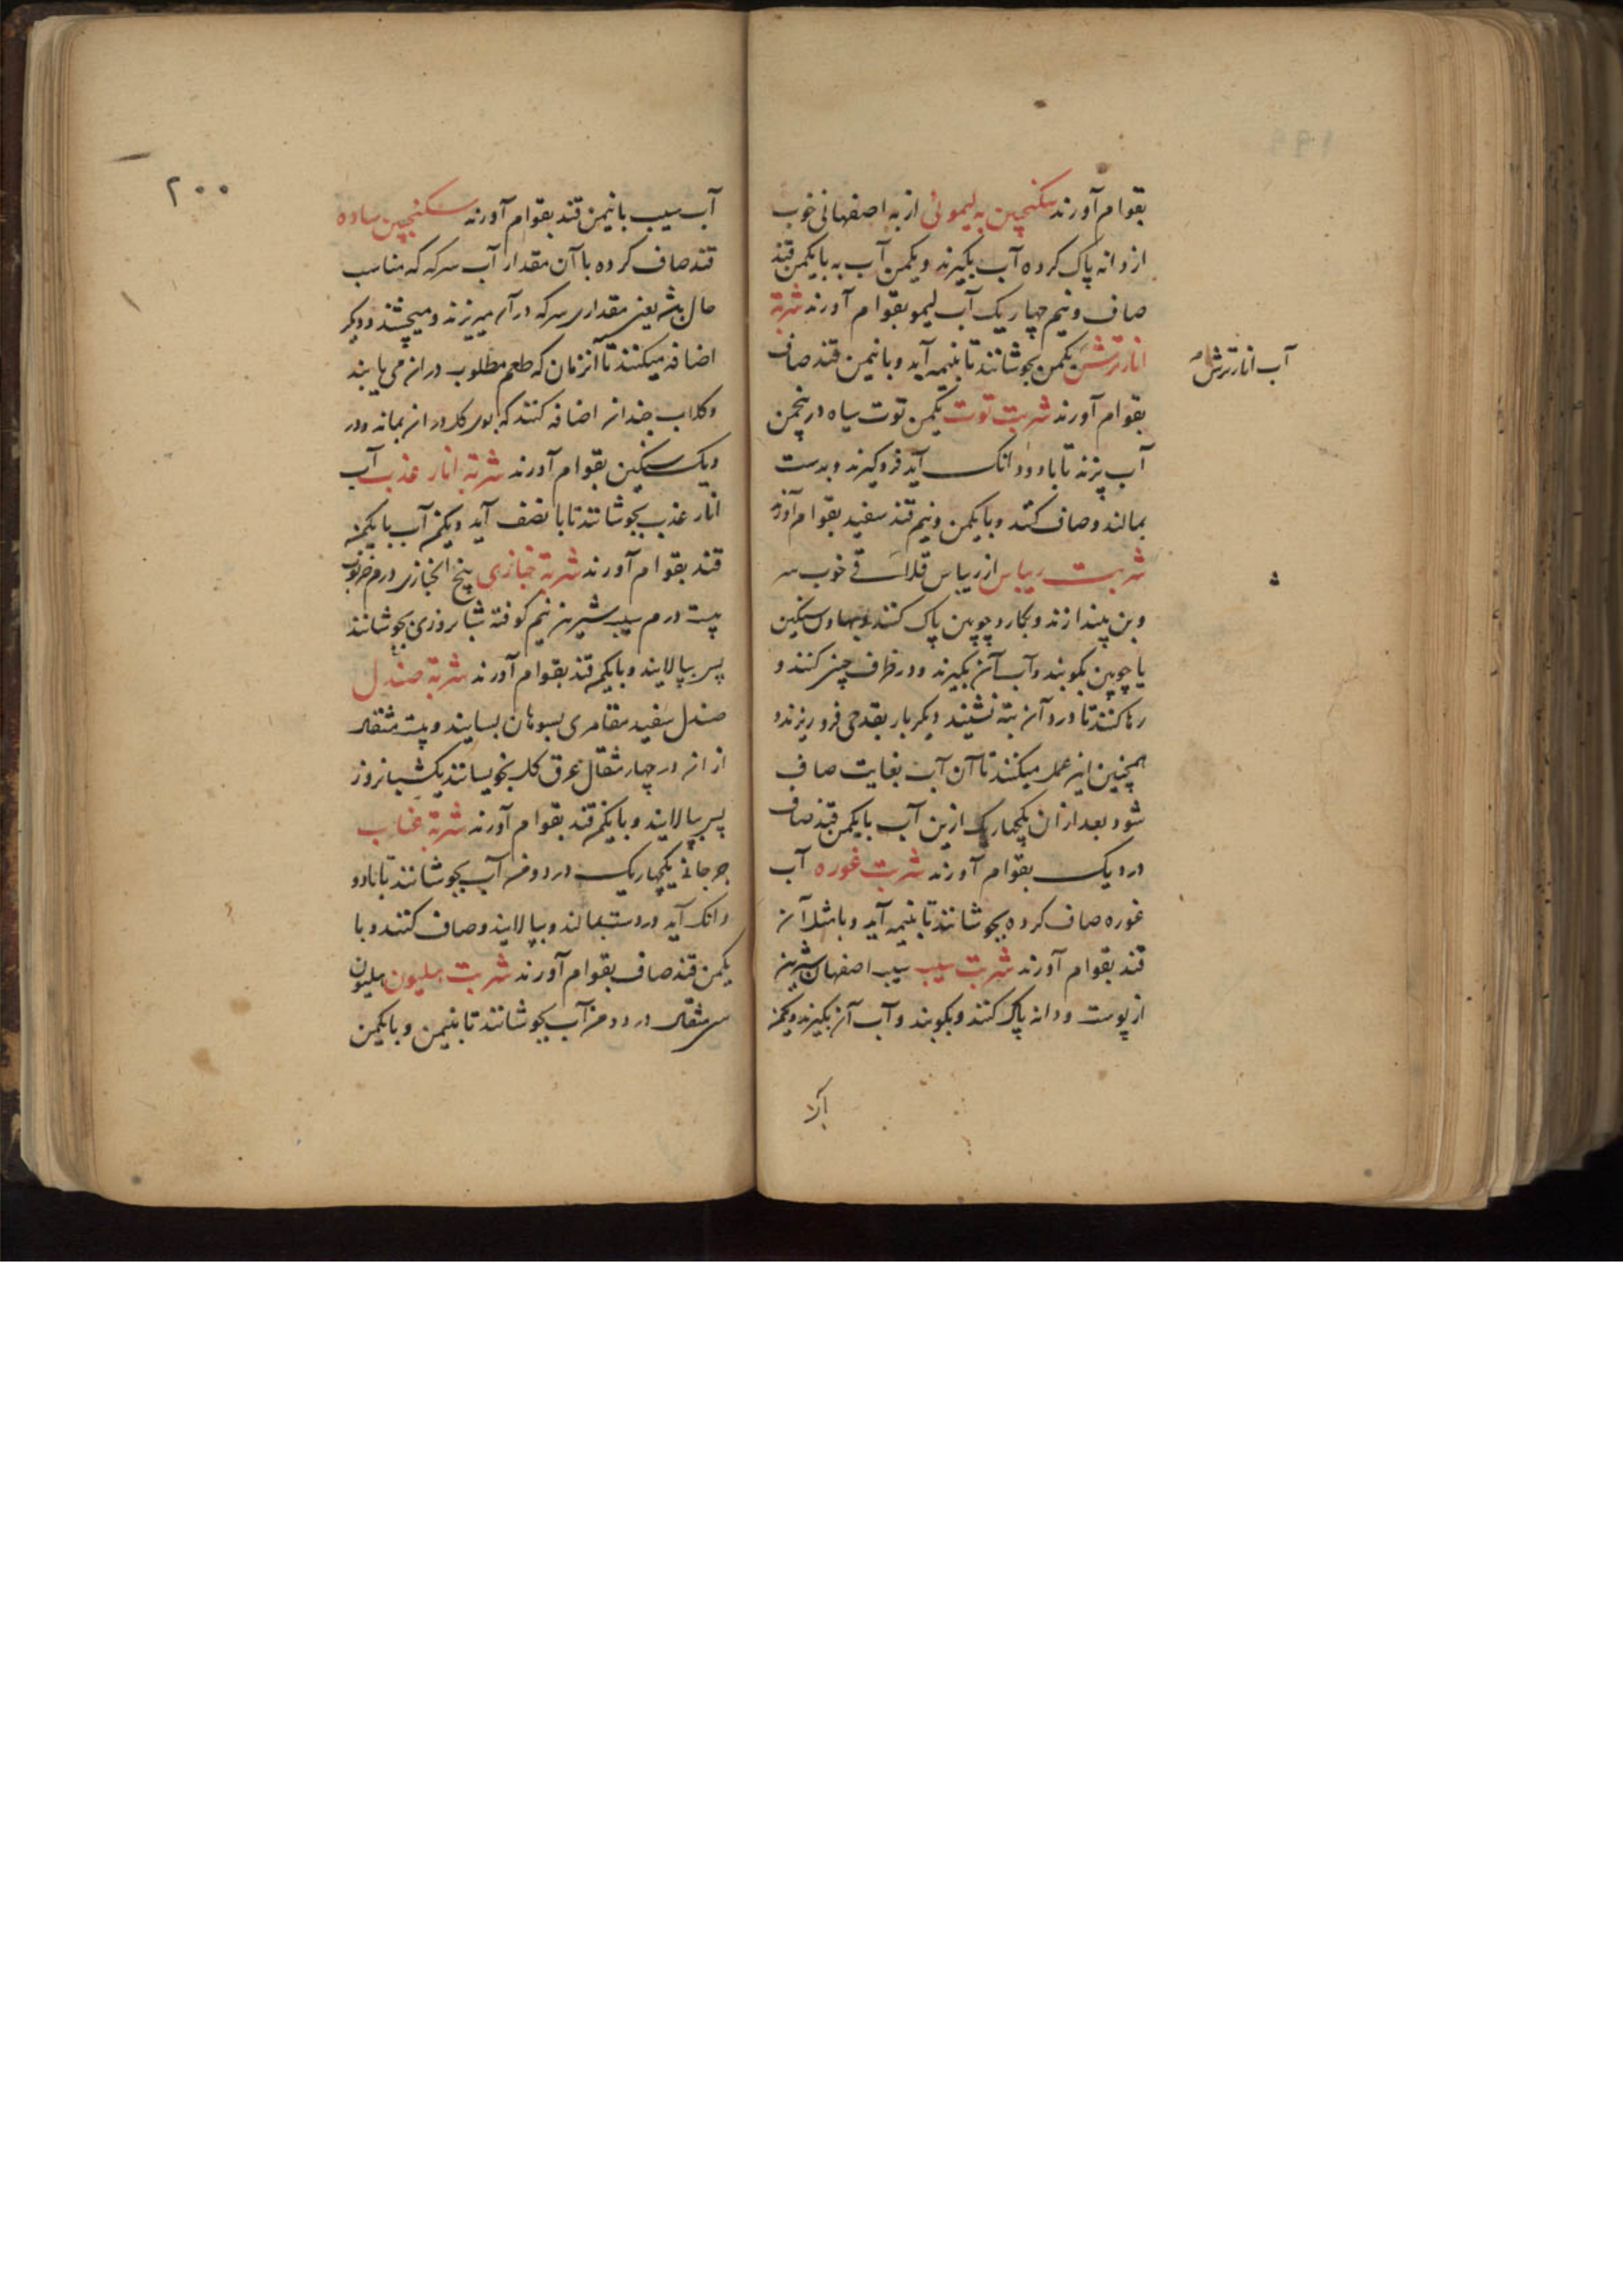 بقوام آورند سکنجبین به لیموئی از به اصفهانی خوب
از دانه پاک کرده آب بگیرند و یکمن آب به با یکمن قند
صاف و نیم چهار یک آب لیمو بقوام آورند شربة
انار ترش یکمن بجوشانند تا بنیمه آید و با نیمن قند صاف
آب انار ترش
بقوام آورند شربت توت یکمن توت سیاه در پنجمن
آب پزند تا با دو دانک آید فرو گیرند و بدست
بمالند و صاف کنند و با یکمن و نیم قند سفید بقوام آورند
شربت ریباس از ریباس خوب سر
و بن بیندازند و بکارد چوبین پاک کنند و بهاون سنکین
یا چوبین بکوبند و آب آن بگیرند و در ظرف چینی کنند و
رها کنند تا درد آن بته نشیند دیگر بار بقدحی فرو ریزند و
همچنین این عمل میکنند تا آن آب بغایت صاف
شود بعد از ان یکچهاریک ازین آب با یکمن قند صاف
در دیک بقوام آورند شربت غوره آب
غوره صاف کرده بجوشانند تا بنیمه آید و با مثل آن
قند بقوام آورند شربت سیب سیب اصفهان شیرین
از پوست و دانه پاک کنند و بکوبند و آب آن بگیرند و یکمن
۲۰۰
آب سیب با نیمن قند بقوام آورند سکنجبین ساده
قند صاف کرده با آن مقدار آب سرکه که مناسب
حال باشد یعنی مقداری سرکه در آن میریزند و میچشند و دیگر
اضافه میکنند تا آنزمان که طعم مطلوب در ان می یابند
و کلاب چندان اضافه کنند که بوی کل در ان بماند و در
دیک سنکین بقوام آورند شربة انار عذب آب
انار عذب بجوشانند تا با نصف آید و یکمن آب با یکمن
قند بقوام آورند شربة خبازی پنج الخبازی درم خرنوب
بیست درم سیب شیرین نیم کوفته شبانروزی بجوشانند
پس بپالایند و با یکمن قند بقوام آورند شربة صندل
صندل سفید مقاصری بسوهان بسایند و بیست مثقال
از ان در چهار مثقال عرق کل بخویسانند یک شبانروز
پس بپالایند و با یکمن قند بقوام آورند شربة عناب
جرجانی یکچهاریک در دو من آب بجوشانند تا با دو
دانک آید و دست بمالند و بپالایند و صاف کنند و با
یکمن قند صاف بقوام آورند شربت هلیون هلیون
سی مثقال در دو من آب بجوشانند تا بنیمن و با یکمن